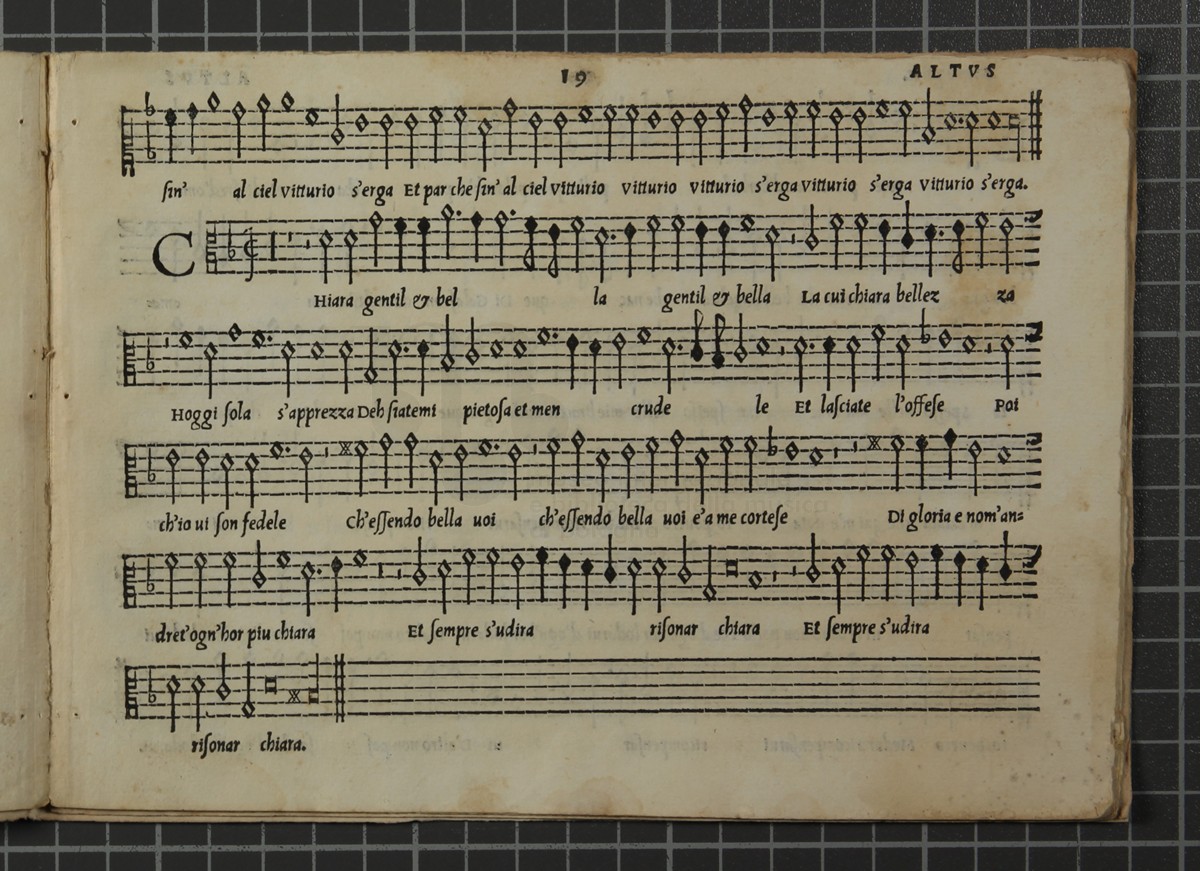 19 ALTVS
sin' al ciel vitturio s'erga Et par che sin' al ciel vitturio vitturio vitturio s'erga vitturio s'erga vitturio s'erga.
C Hiara gentil & bel la gentil & bella La cui chiara bellez za
Hoggi sola s'apprezza Deh siatemi pietosa et men crude le Et lasciate l'offese Poi
ch'io ui son fedele Ch'essendo bella uoi ch'essendo bella uoi e'a me cortese Di gloria e nom'an=
dret'ogn'hor piu chiara Et sempre s'udira risonar chiara Et sempre s'udira
risonar chiara.